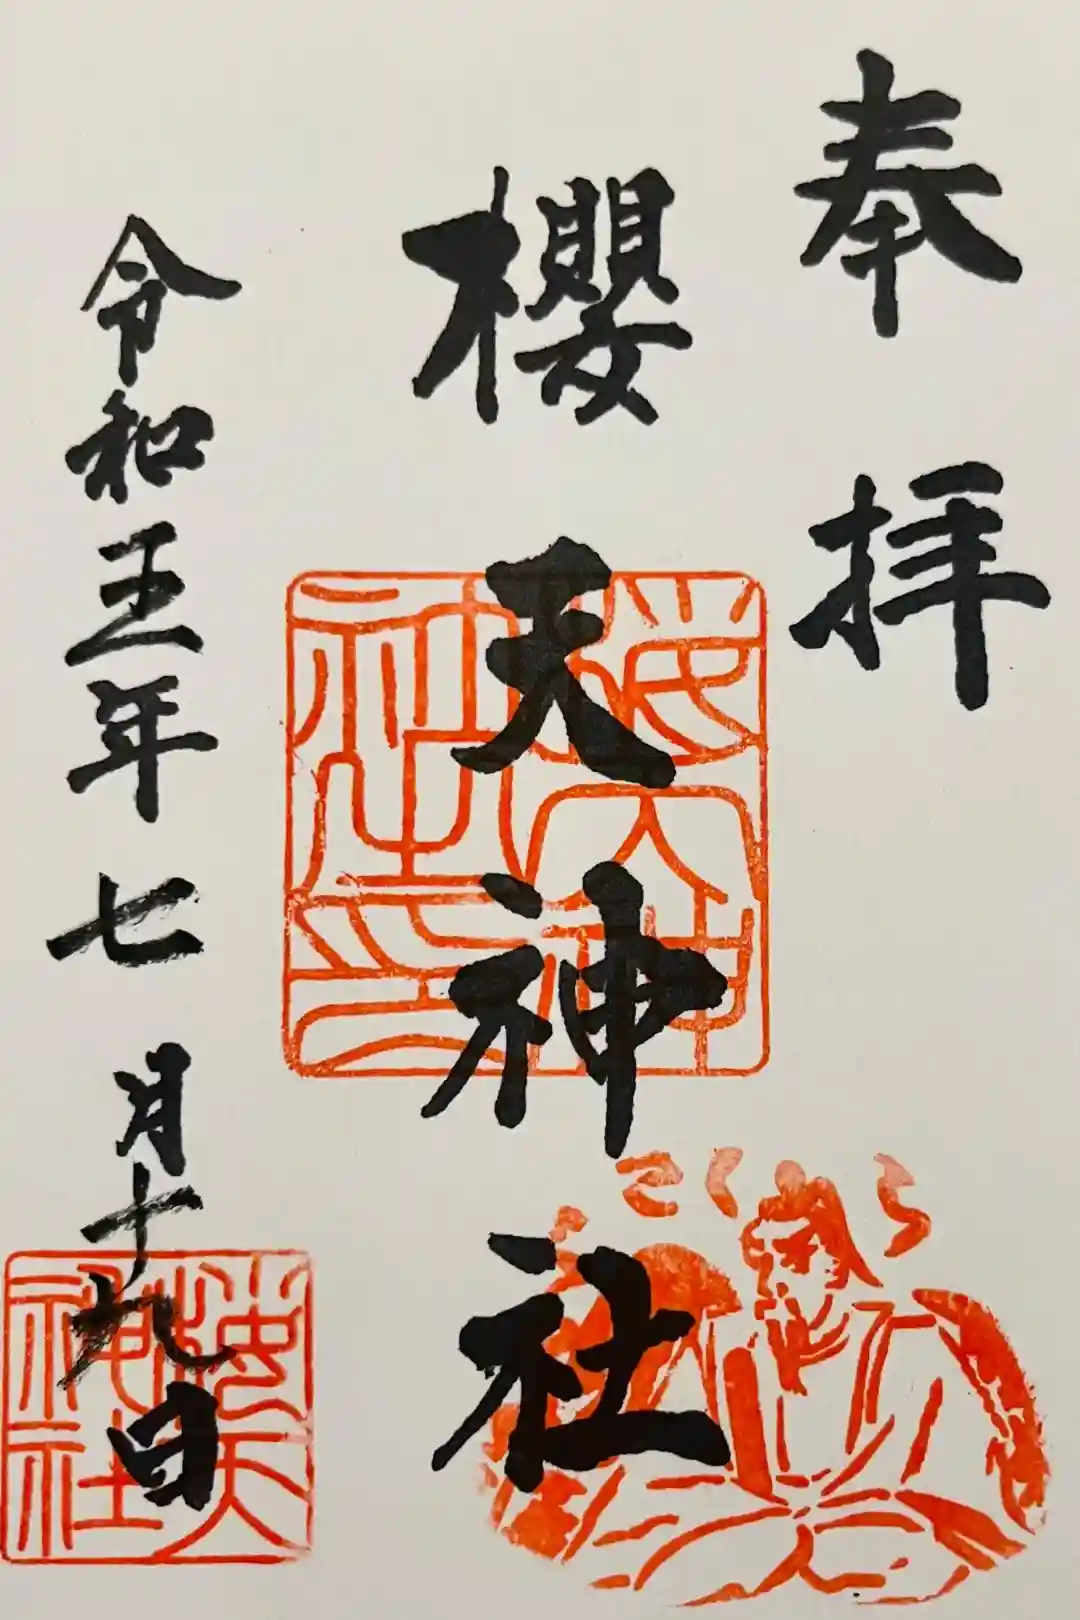 奉拝
櫻天神社
令和五年七月十九日
櫻天神社之印
さくら
櫻天神社